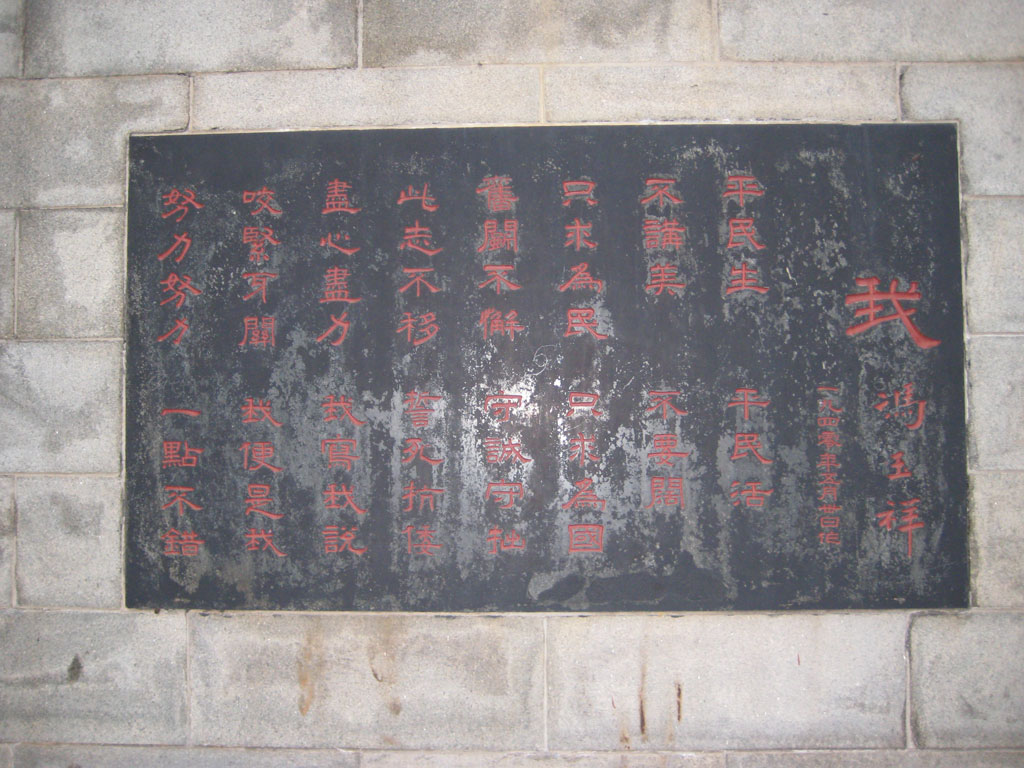 我
馮玉祥
一九四零年五月卅日作
平民生 平民活
不講美 不要闊
只求為民 只求為國
奮鬪不懈 守誠守拙
此志不移 誓死抗倭
盡心盡力 我寫我說
咬緊牙關 我便是我
努力努力 一點不錯